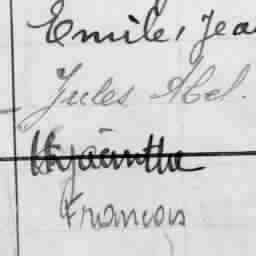 Emile, Jea
Jules Abel.
Hyacinthe
François